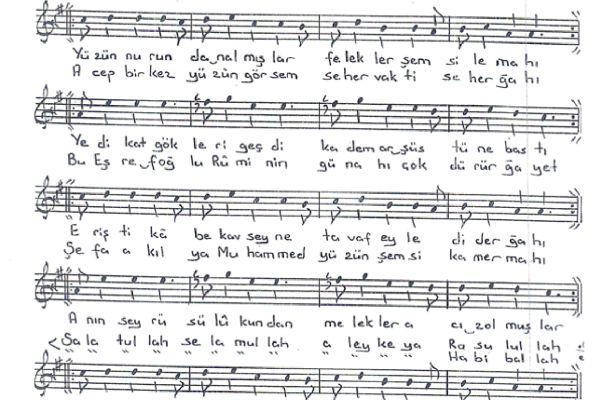 Yü zün nu run da nal mış lar fe lek ler şem si le ma hı
A cep bir kez yü zün gör sem se her vak ti se her ğa hı
Ye di kat gök le ri geç di ka dem ar şüs tü ne bas tı
Bu Eş re foğ lu Rû mi nin gü na hı çok dü rür ğa yet
E riş ti kâ be kav sey ne ta vaf ey le di der ğa hı
Şe fa a kıl ya Mu ham med yü zün şem si ka mer ma hı
A nın sey rü sü lû kun dan me lek ler a ci zol muş lar
Sa la tul lah se la mul lah a ley ke ya Ra su lul lah
" " " " " " " " " " " Ha bi bal lah